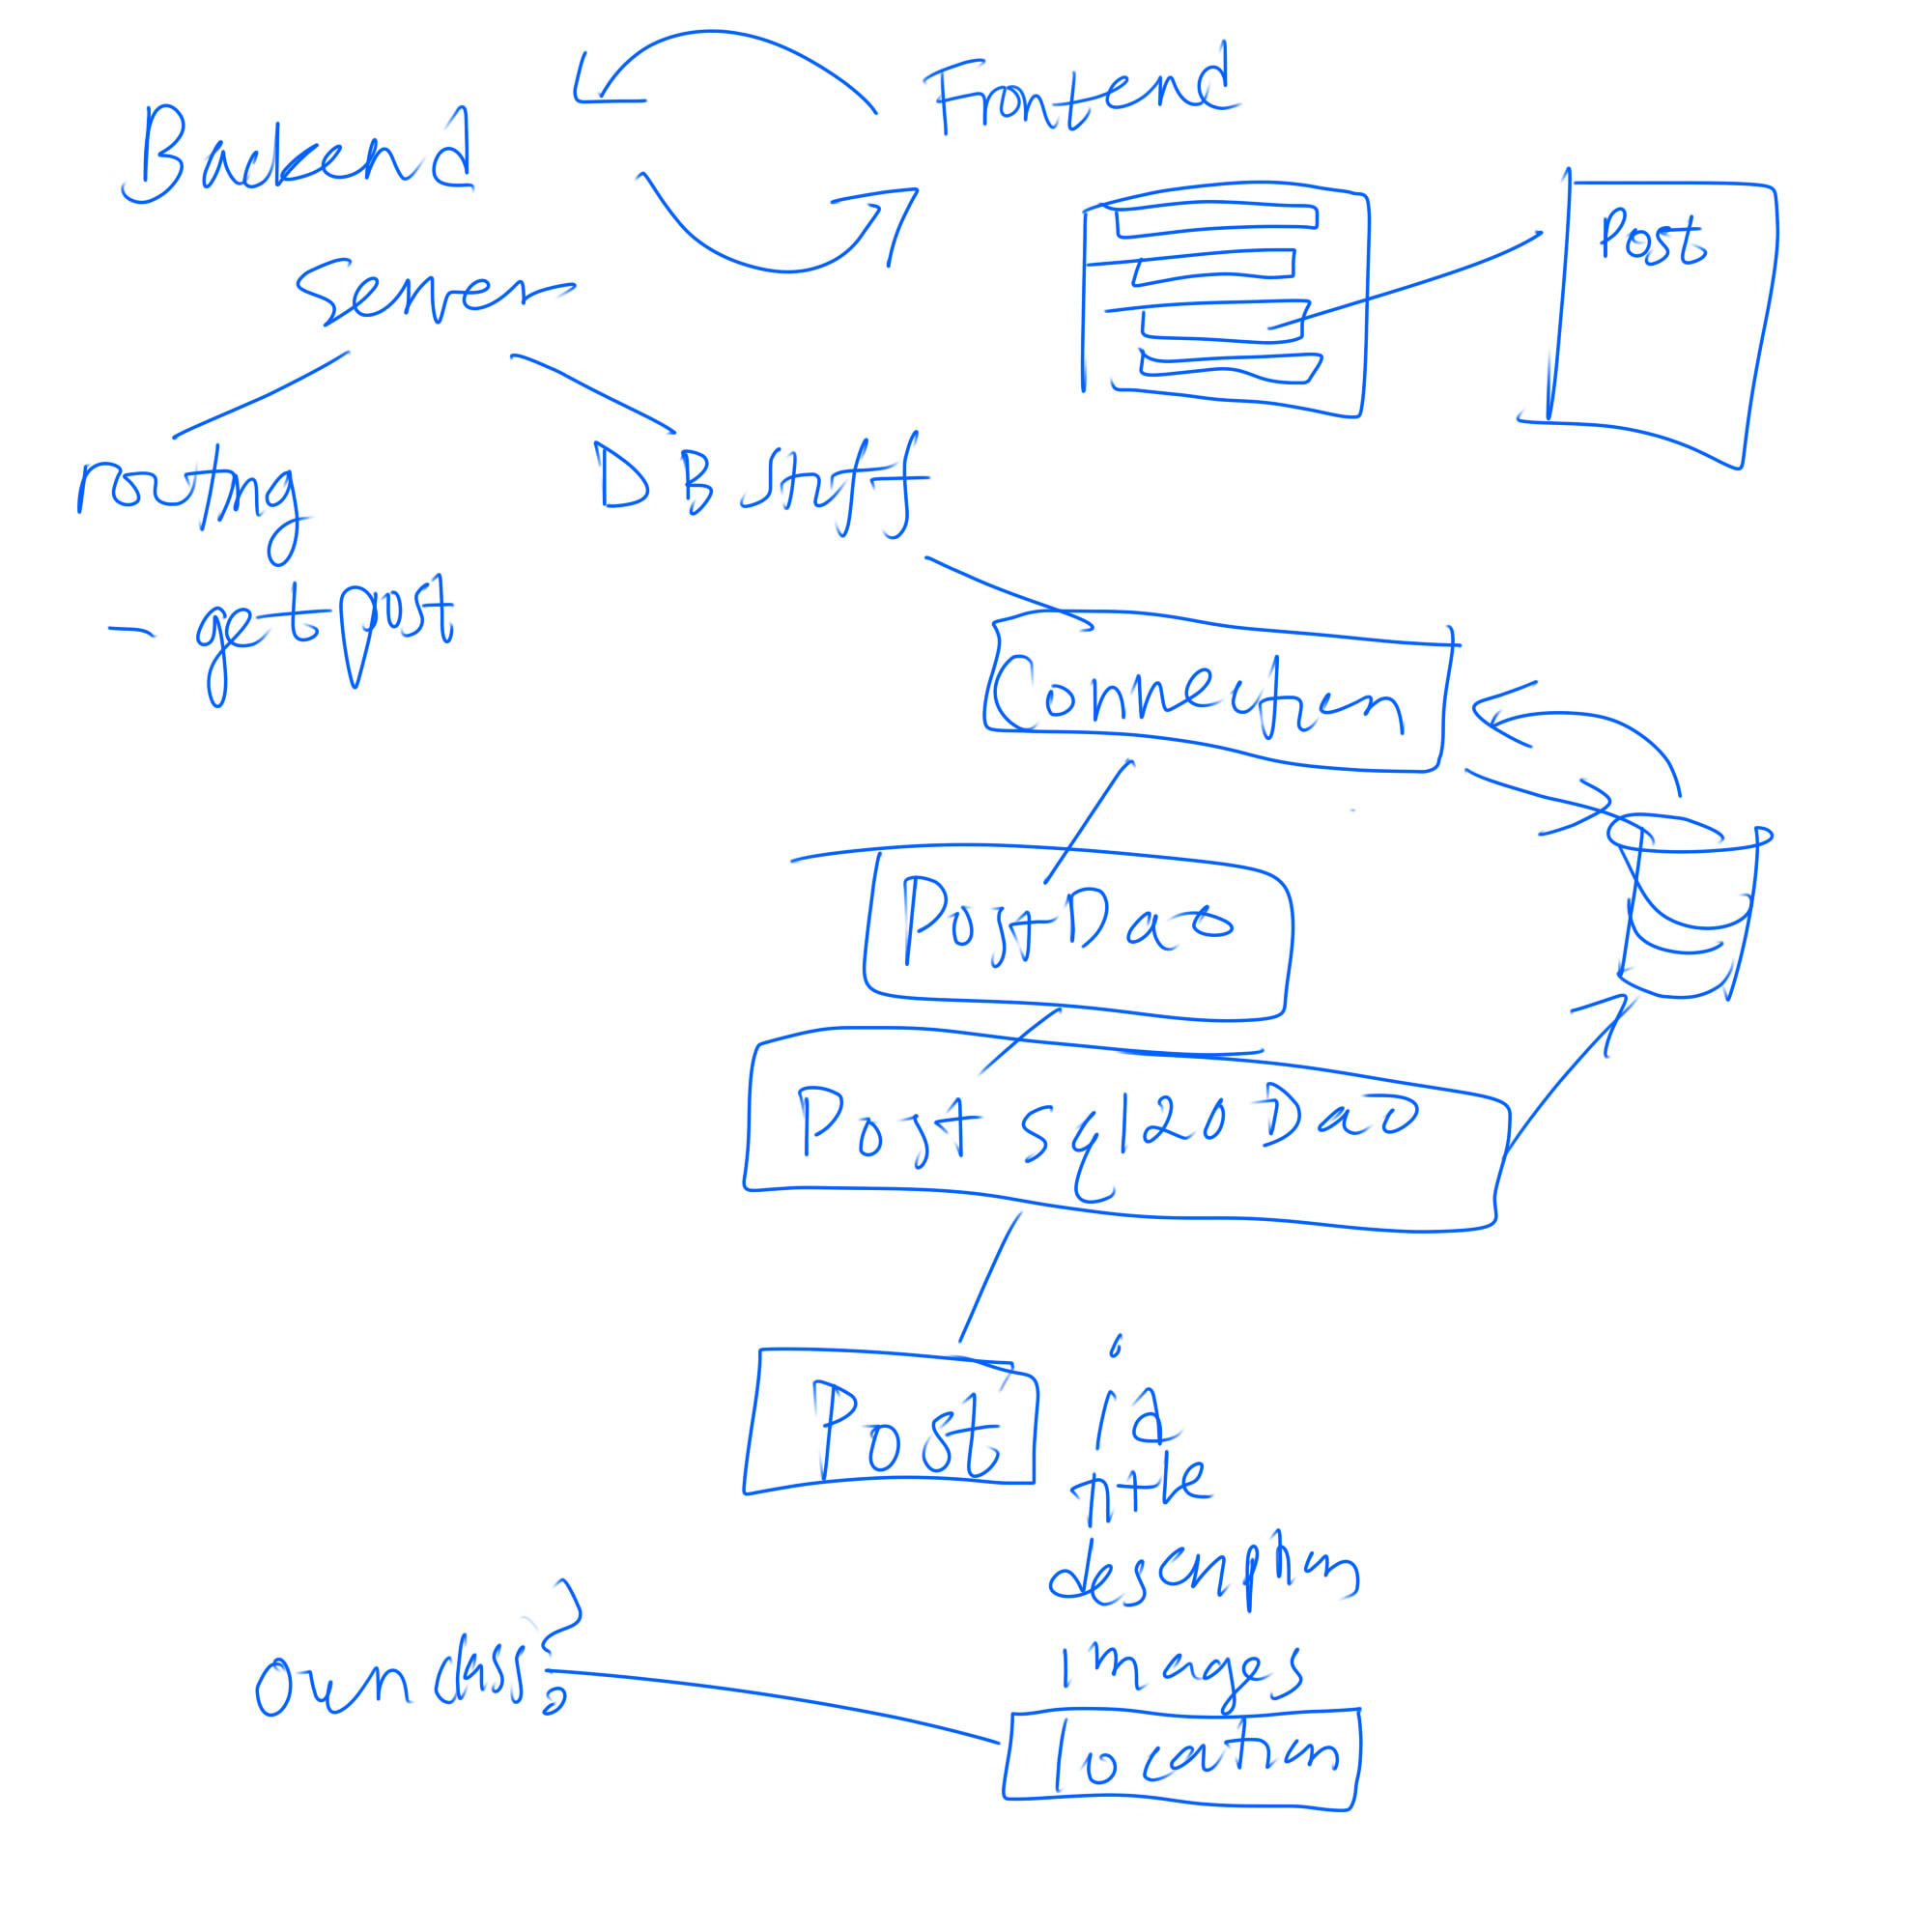 Backend
Frontend
Server
Post
routing
DB stuff
- get post
Connection
PostDao
Post sql2oDao
Post
id
title
description
images
location
own class?